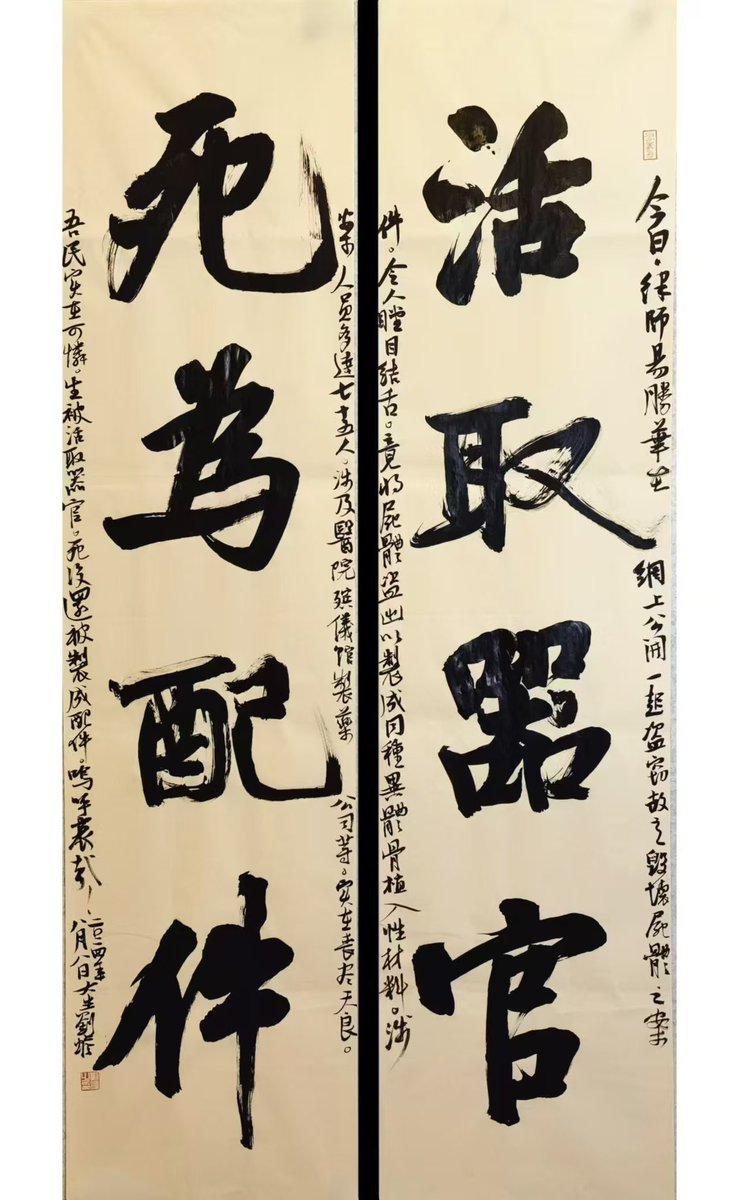 今日，律师易勝華在網上公開一起盜窃故意毁壞屍體之案
活取器官
件。令人瞠目結舌。竟将屍體盜出以製成同種異體骨植入性材料。涉
案人員多達七十五人。涉及醫院殯儀館製藥公司等。实在丧尽天良。
死為配件
吾民实在可憐。生被活取器官。死後還被製成配件。嗚呼哀哉！
二〇二四年
八月八日大生劉